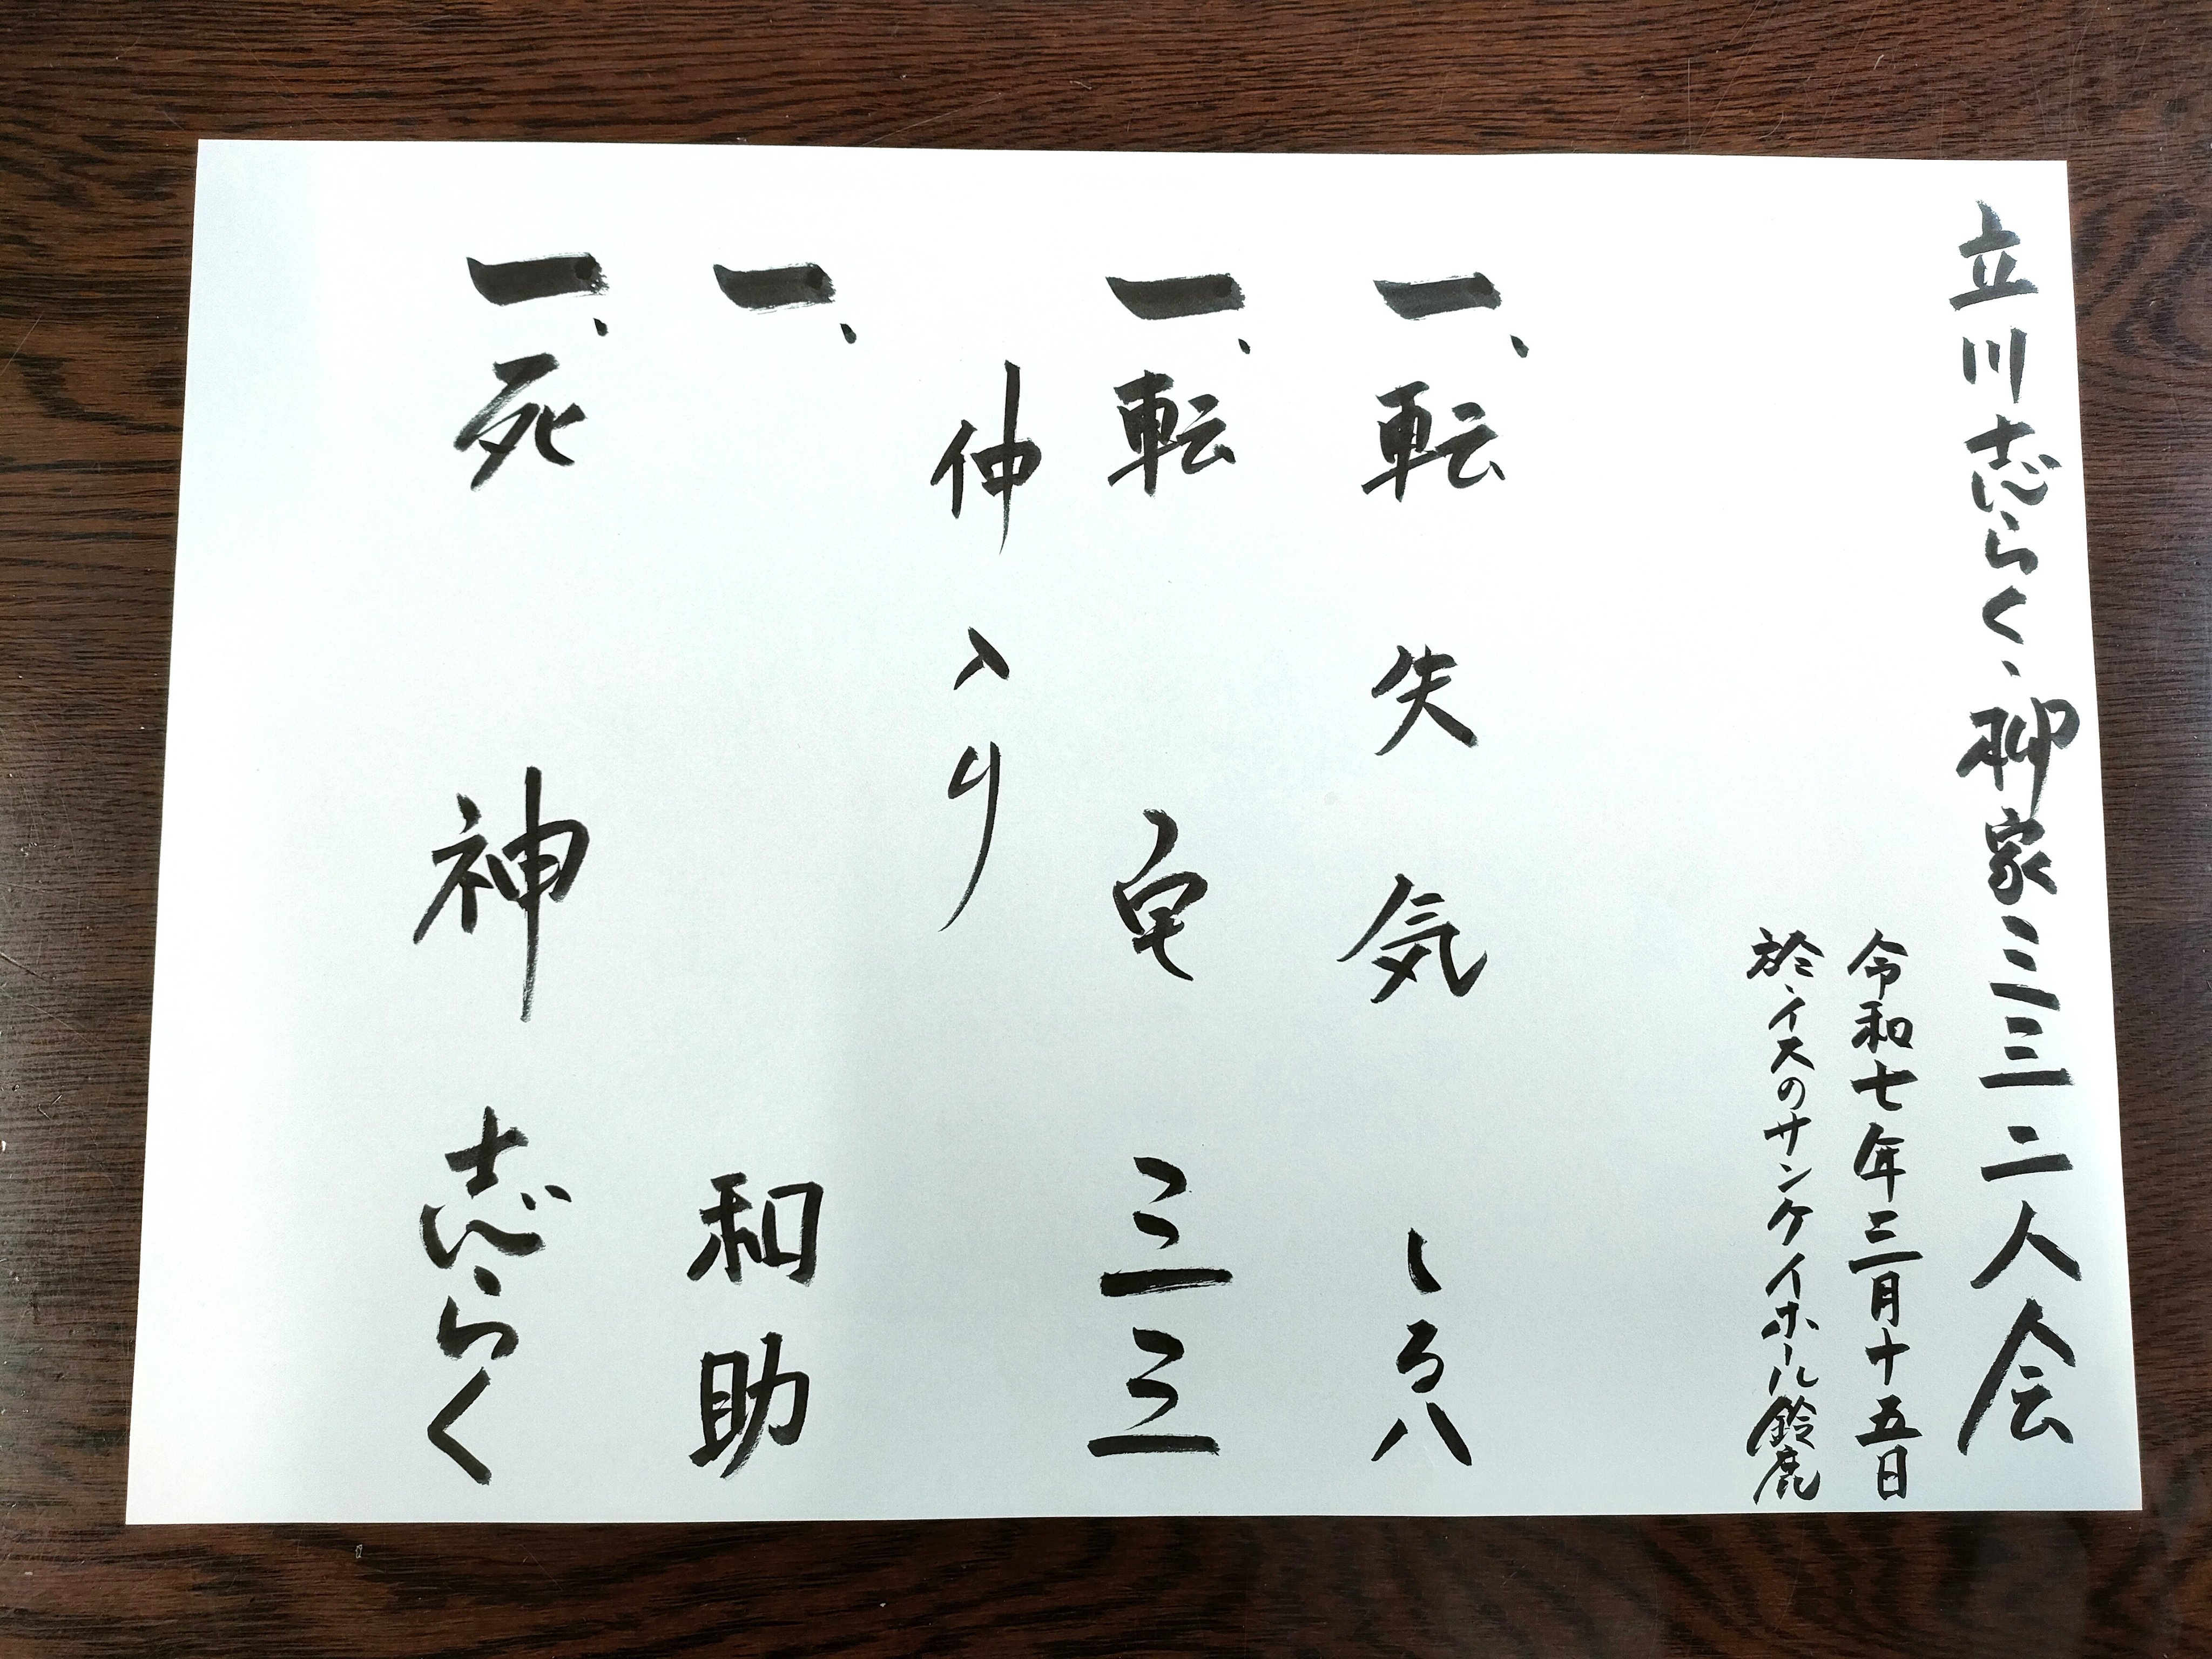 立川志らく、柳家三三 二人会
令和七年三月十五日
於、イスのサンケイホール鈴鹿
一、転失気 しる八
一、転宅 三三
仲入り
一、 和助
一、死神 志らく